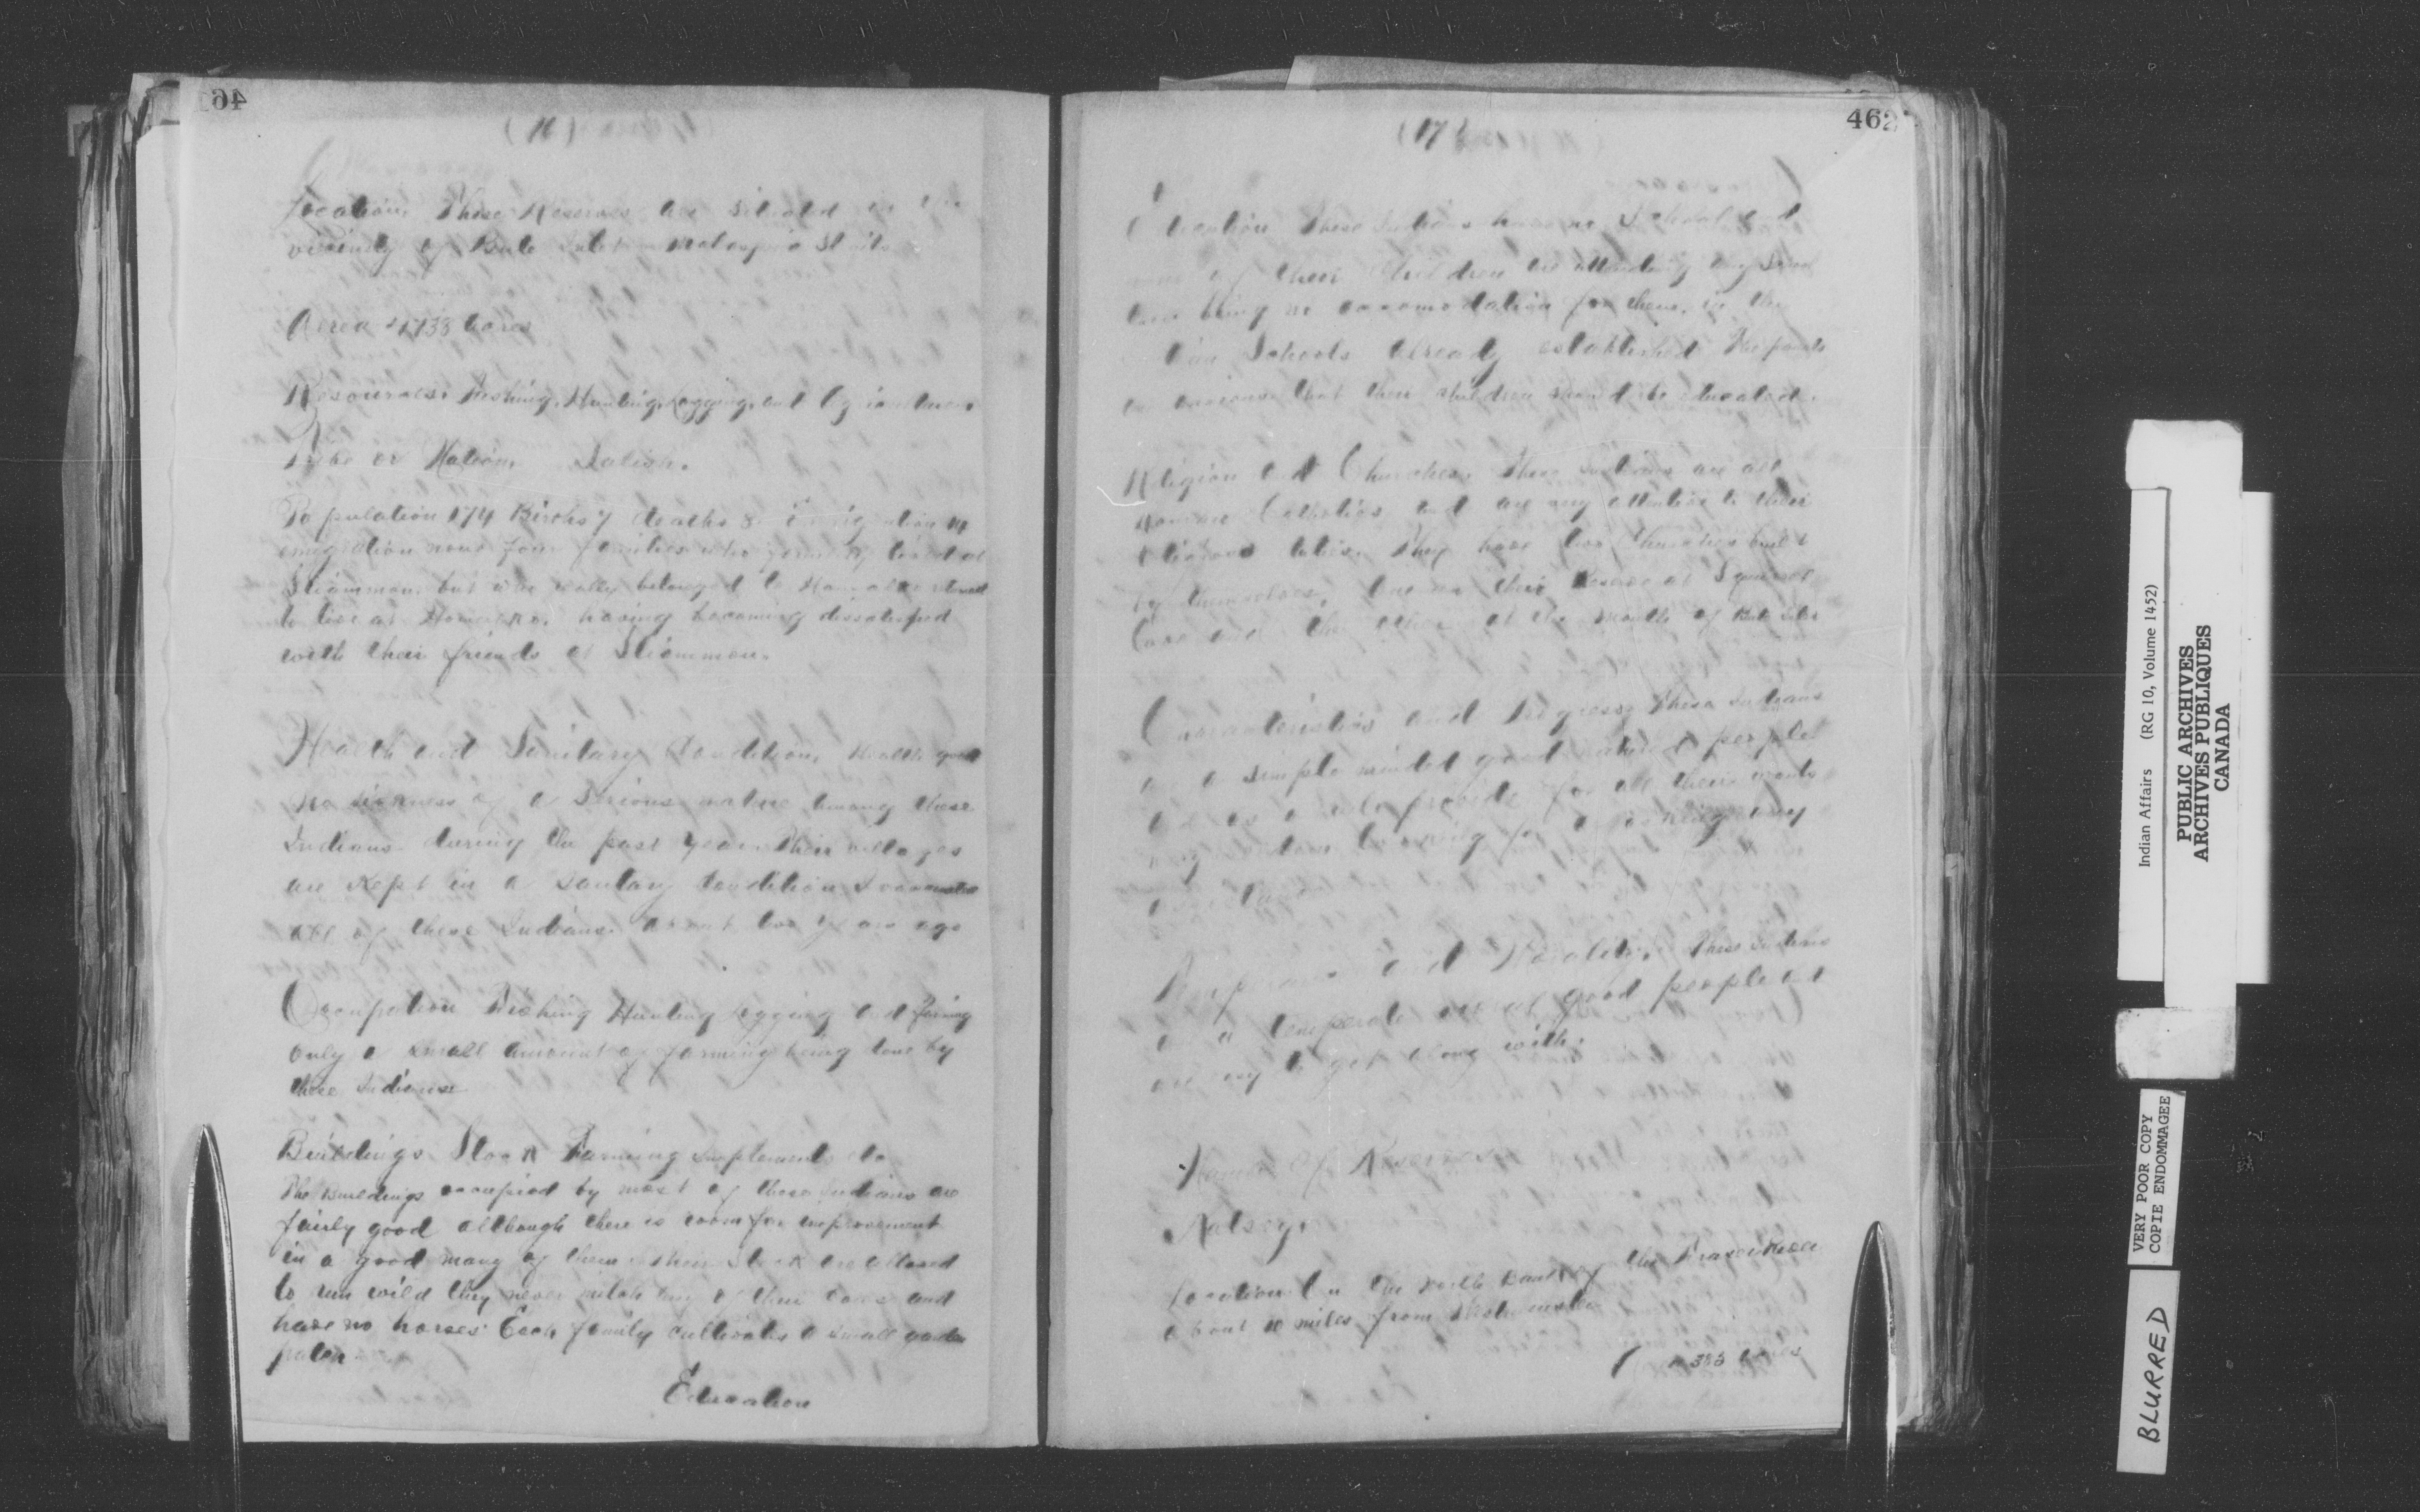 (16)
Location. These Reserves are situated in the
vicinity of Bute Inlet Malaspina Straits
Area 4738 acres
Resources. Fishing, Hunting, Logging, and
Tribe or Nation. Salish.
Population 174 Births 7 deaths 8
emigration none four families who formerly lived at
Sliammon but who really belonged to
to live at Homercro. having becoming dissatisfied
with their friends at Sliammon.
Health and Sanitary Condition. Health good
No sickness of a serious nature among these
Indians during the past year. Their villages
are kept in a sanitary condition I vaccinated
all of these Indians about two years ago
Occupation Fishing Hunting Logging and farming
only a small amount of farming being done by
these Indians
Buildings Stock Farming Implements etc
The Buildings occupied by most of these Indians are
fairly good although there is room for improvement
in a good many of them. Their Stock are allowed
to run wild they never milch any of their cows and
have no horses. Each family cultivates a small garden
patch
Education
462
(17)
Education These Indians have no School and
none of their children are attending any School
there being no accomodation for them, in the
Schools already established The parents
are anxious that their children should be educated.
Religion and Churches. These Indians are all
Roman Catholics and are very attentive to their
religious duties. They have two Churches built
by themselves, one on their Reserve at Squirrel
Cove and the other at the mouth of Bute Inlet
Characteristics and Progress, These Indians
are a simple minded good natured people
and as a rule provide for all their wants
asking any
Temperance and Morality. These Indians
are a temperate moral good people and
are easy to get along with.
Name of Reserves
Katsey.
Location. On the north bank of the Fraser River
about 10 miles from Westminster
385 acres
Indian Affairs (RG 10, Volume 1452)
PUBLIC ARCHIVES
ARCHIVES PUBLIQUES
CANADA
VERY POOR COPY
COPIE ENDOMMAGEE
BLURRED